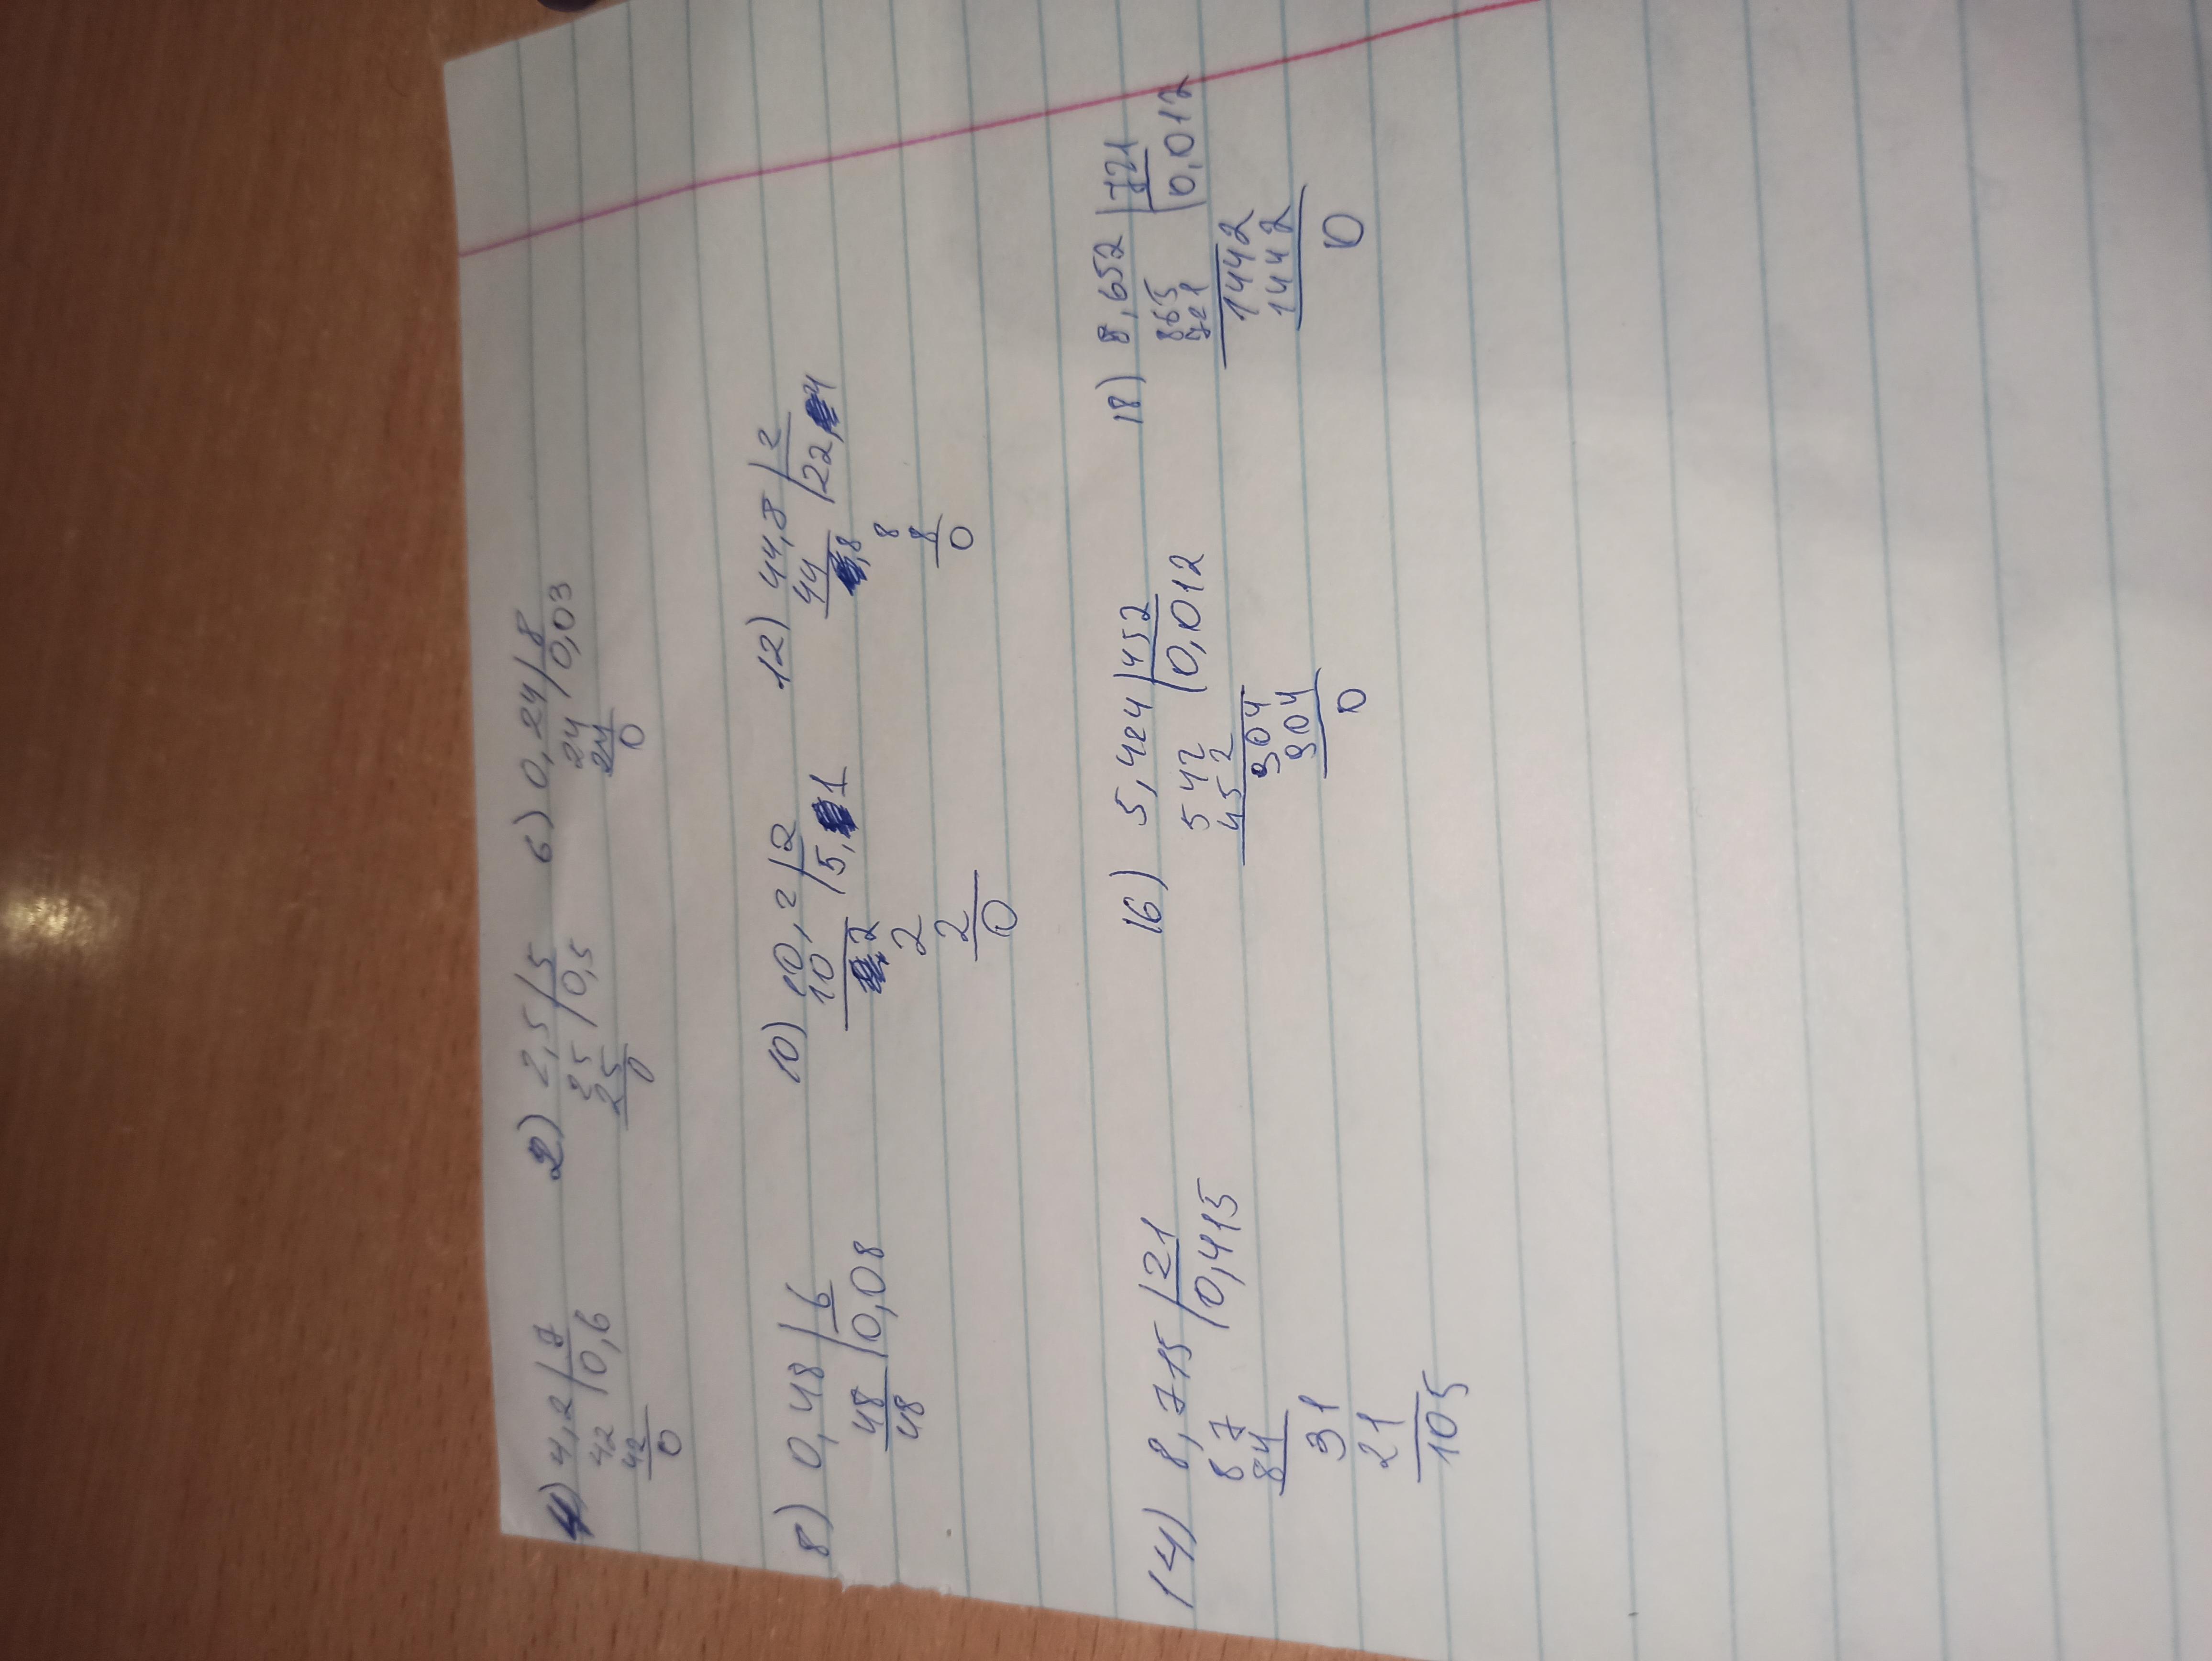 4) 4,2 | 7 2) 2,5 | 5 6) 0,24 | 8
42 | 0,6 25 | 0,5 24 | 0,03
42 25 24
0 0 0
8) 0,48 | 6 10) 10,2 | 2 12) 44,8 | 2
48 | 0,08 10 | 5,1 44 | 22,4
48 ,2 ,8
2 8
2 8
0 0
14) 8,715 | 21 16) 5,424 | 452 18) 8,652 | 721
87 | 0,415 542 | 0,012 865 | 0,012
84 452 721
31 904 1442
21 904 1442
105 0 0